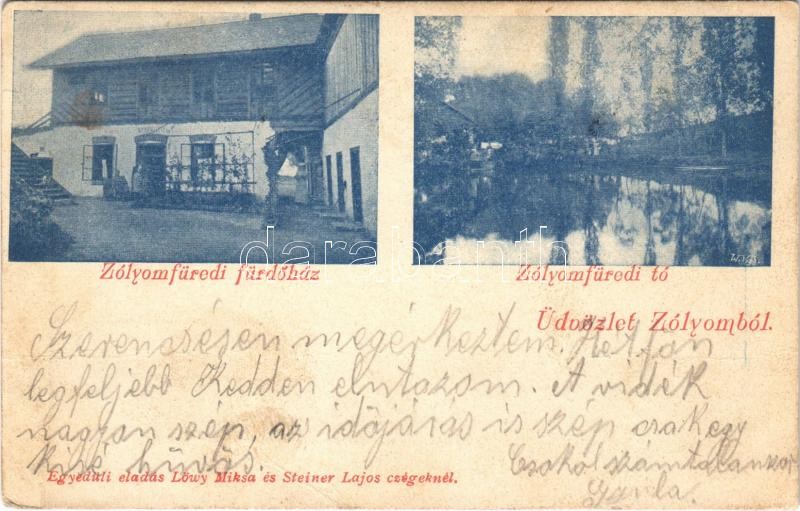 Zólyomfüredi fürdőház
Zólyomfüredi tó
Üdvözlet Zólyomból.
Szerencsésen megérkeztem. Hétfőn
legfeljebb Kedden elutazom. A vidék
nagyon szép, az időjárás is szép csak egy
kisé hűvös.
Csokol számtalanszor
Gyula.
Egyedüli eladás Löwy Miksa és Steiner Lajos czégeknél.
darabanth